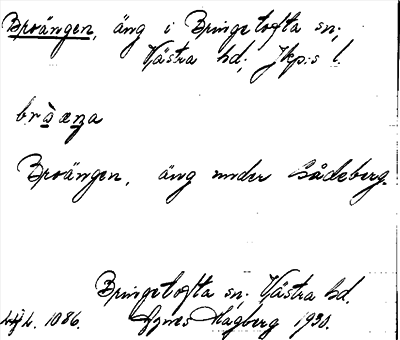 Broängen, äng i Bringetofta sn;
Västra hd; Jkp:s l.
bràæna
Broängen, äng under Bådeberg.
Bringetofta sn; Västra hd.
1086. Agnes Hagberg 1930.